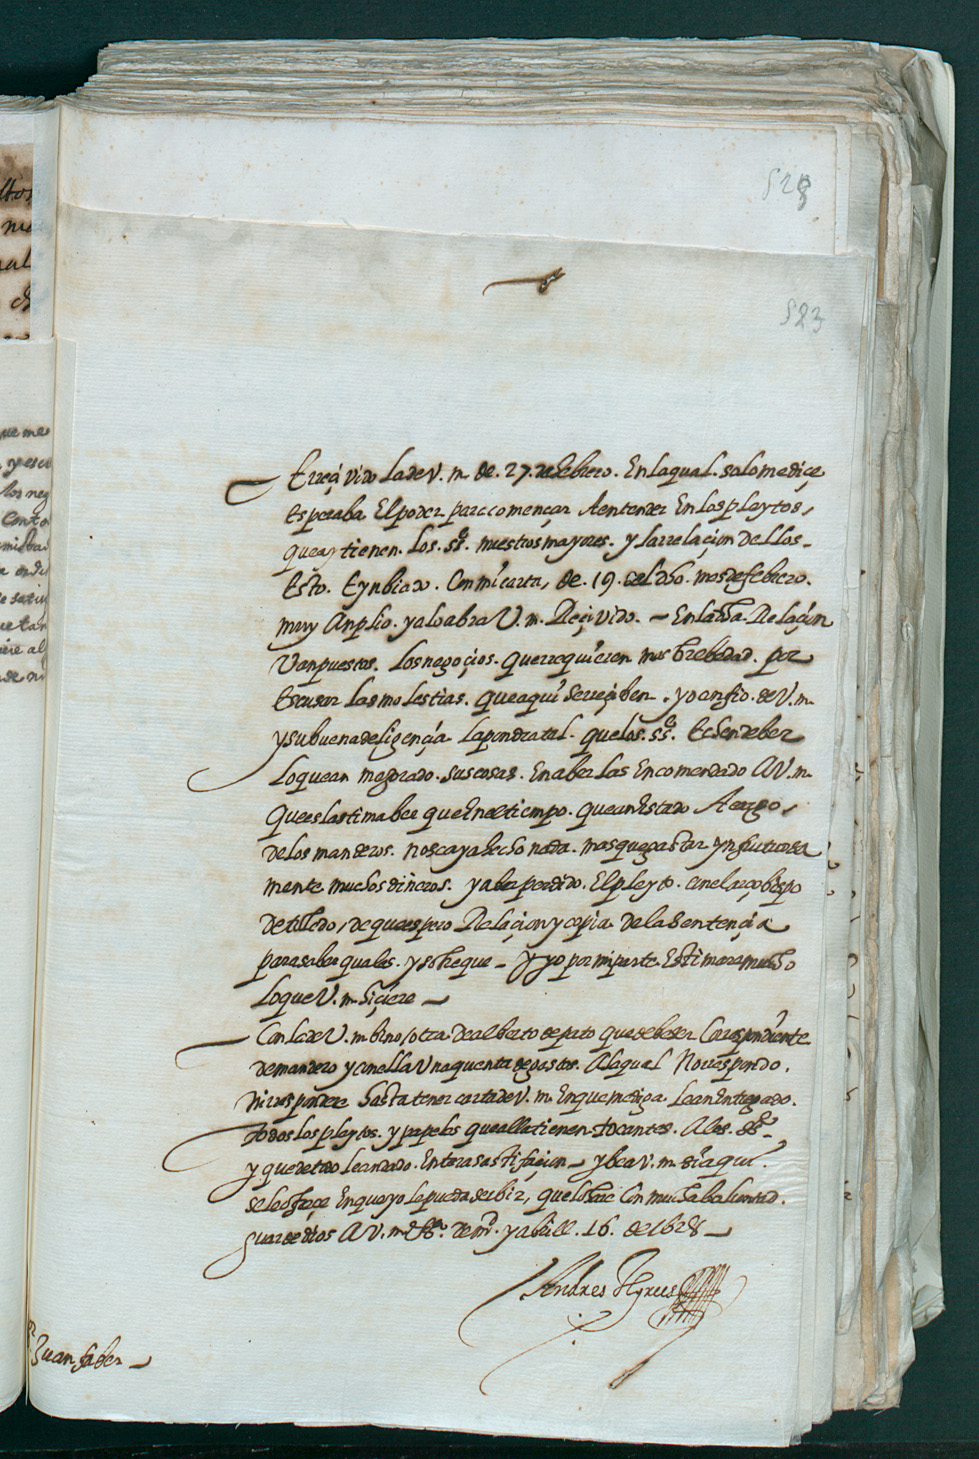 523
523
Erreçivido la de V. m. de. 27. de febrero. En la qual. solo me diçe
Esperaba El poder para comencar A entender En los pleytos,
que ay tienen. los. ss.es nuestros mayores. y la rrelaçion de llos.
Esto. E ynbiado. Con mi carta, de. 19. del dho. mes de febrero.
muy Anplio. ya lo abra V. m. Reçivido. En la dha. Relaçion
Van puestos. los negoçios. que rrequieren mas brebedad. por
Escusar las molestias. que aqui Se reçiben. yo confio. de V. m.
y su buena deligençia la pondra tal. que los. ss.es Echen de ber
lo que an mejorado. sus cosas. En aber las Encomendado A V. m.
que es lastima ber que En el tiempo. que an Estado A cargo,
de los manderos. no se aya hecho nada. mas que gastar ynfrutuosa
mente muchos dineros. y aber perdido. El pleyto. con el arçobispo
de toledo, de que espero Relaçion y copia de la Sentençia
para saber qual es. y sobre que y yo por mi parte Estimare mucho
lo que V. m. hiçiere
Con la de V. m. bino otra de alberto de prato que debe de ser Correspondiente
de mandero y con ella Una quenta de gastos. A la qual No rrespondo.
ni rrespondere hasta tener carta de V. m. En que me diga le an Entregado.
todos los pleytos. y papeles que alla tienen tocantes. A los. ss.es
y que de todo le an dado. Entera satisfaçion y bea V. m. si aqui.
se le ofreçe En que yo le pueda serbir, que lo hare Con mucha boluntad.
guarde dios A V. m. de m.d y abril. 16. de 1628
Andres
Juan faber